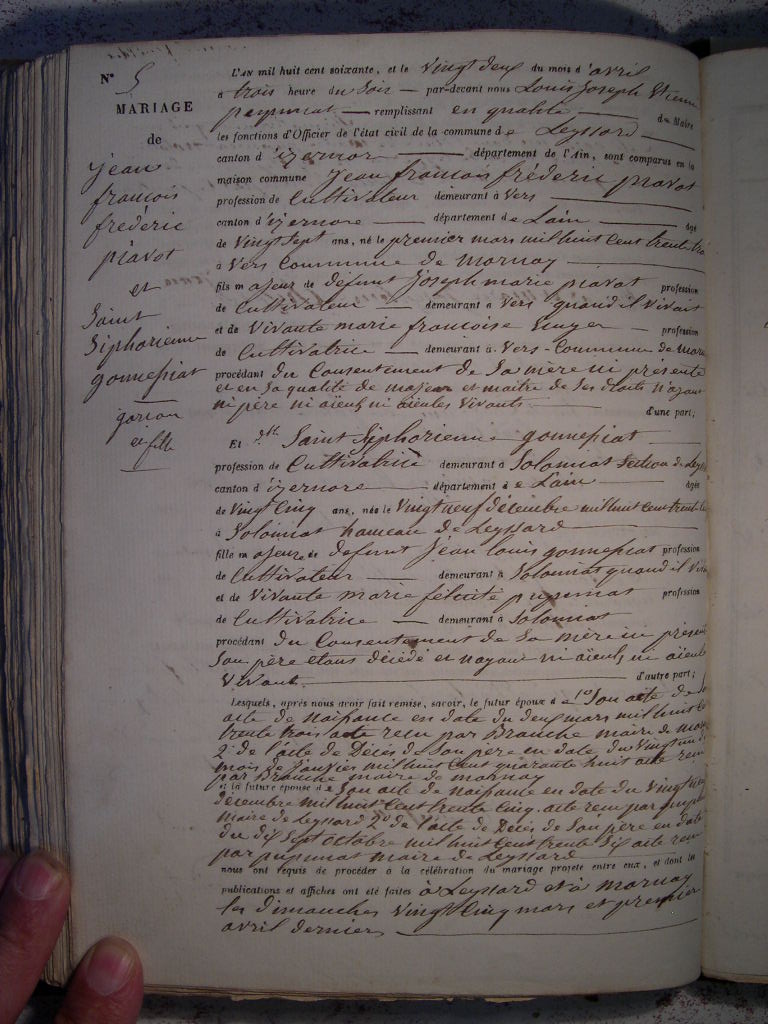 N° 5
MARIAGE
de
jean
françois
fréderic
piavot
et
Saint
Siphorienne
gonnessiat
garçon
et fille
L'AN mil huit cent soixante, et le vingt deux du mois d'avril
à trois heure du Soir — par-devant nous Louis Joseph
— remplissant en qualité — de Maire
les fonctions d'Officier de l'état civil de la commune de Leyssard —
canton d'izernore — département de l'Ain, sont comparus en la
maison commune Jean francois fréderic piavot
profession de Cultivateur demeurant à Vers —
canton d'izernore — département de Lain — âgé
de Vingt Sept ans, né le premier mars mil huit Cent trente
à Vers Commune de Mornay —
fils majeur de défunt Joseph marie piavot profession
de Cultivateur — demeurant à Vers quand il Vivait
et de Vivante marie francoise — profession
de Cultivatrice — demeurant à Vers - Commune de
procédant du Consentement de Sa mère ici présente
et en Sa qualité de majeur et maitre de Ses droits n'ayant
ni père ni aïeuls ni aïeules Vivants — d'une part;
Et Dlle Saint Siphorienne gonnessiat —
profession de Cultivatrice demeurant à Solomiat Section de
canton d'izernore — département de Lain — âgée
de Vingt Cinq ans, née le Vingt neuf décembre mil huit Cent trente
à Solomiat hameau de Leyssard —
fille majeure de défunt Jean louis gonnessiat profession
de Cultivateur — demeurant à Solomiat quand il
et de Vivante marie félicité profession
de Cultivatrice — demeurant à Solomiat
procédant du Consentement de Sa mère ici
Son père étant décédé et nayant ni aïeuls, ni aïeules
Vivants — d'autre part;
Lesquels, après nous avoir fait remise, savoir, le futur époux de 1° Son acte de
acte de naissance en date du deux mars mil huit
trente trois acte recu par Branche maire de
2° de l'acte de Décès de Son père en date du Vingt un
mois de Janvier mil huit Cent quarante huit acte recu
par Branche maire de mornay
et la future épouse de Son acte de naissance en date du Vingt
décembre mil huit Cent trente Cinq acte recu par
maire de Leyssard 2° de l'acte de Décès de Son père en date
du dix Sept octobre mil huit Cent trente Six acte recu
par maire de Leyssard
nous ont requis de procéder à la célébration du mariage projeté entre eux, et dont les
publications et affiches ont été faites à Leyssard et à Mornay
les Dimanches Vingt Cinq mars et premier
avril derniers —